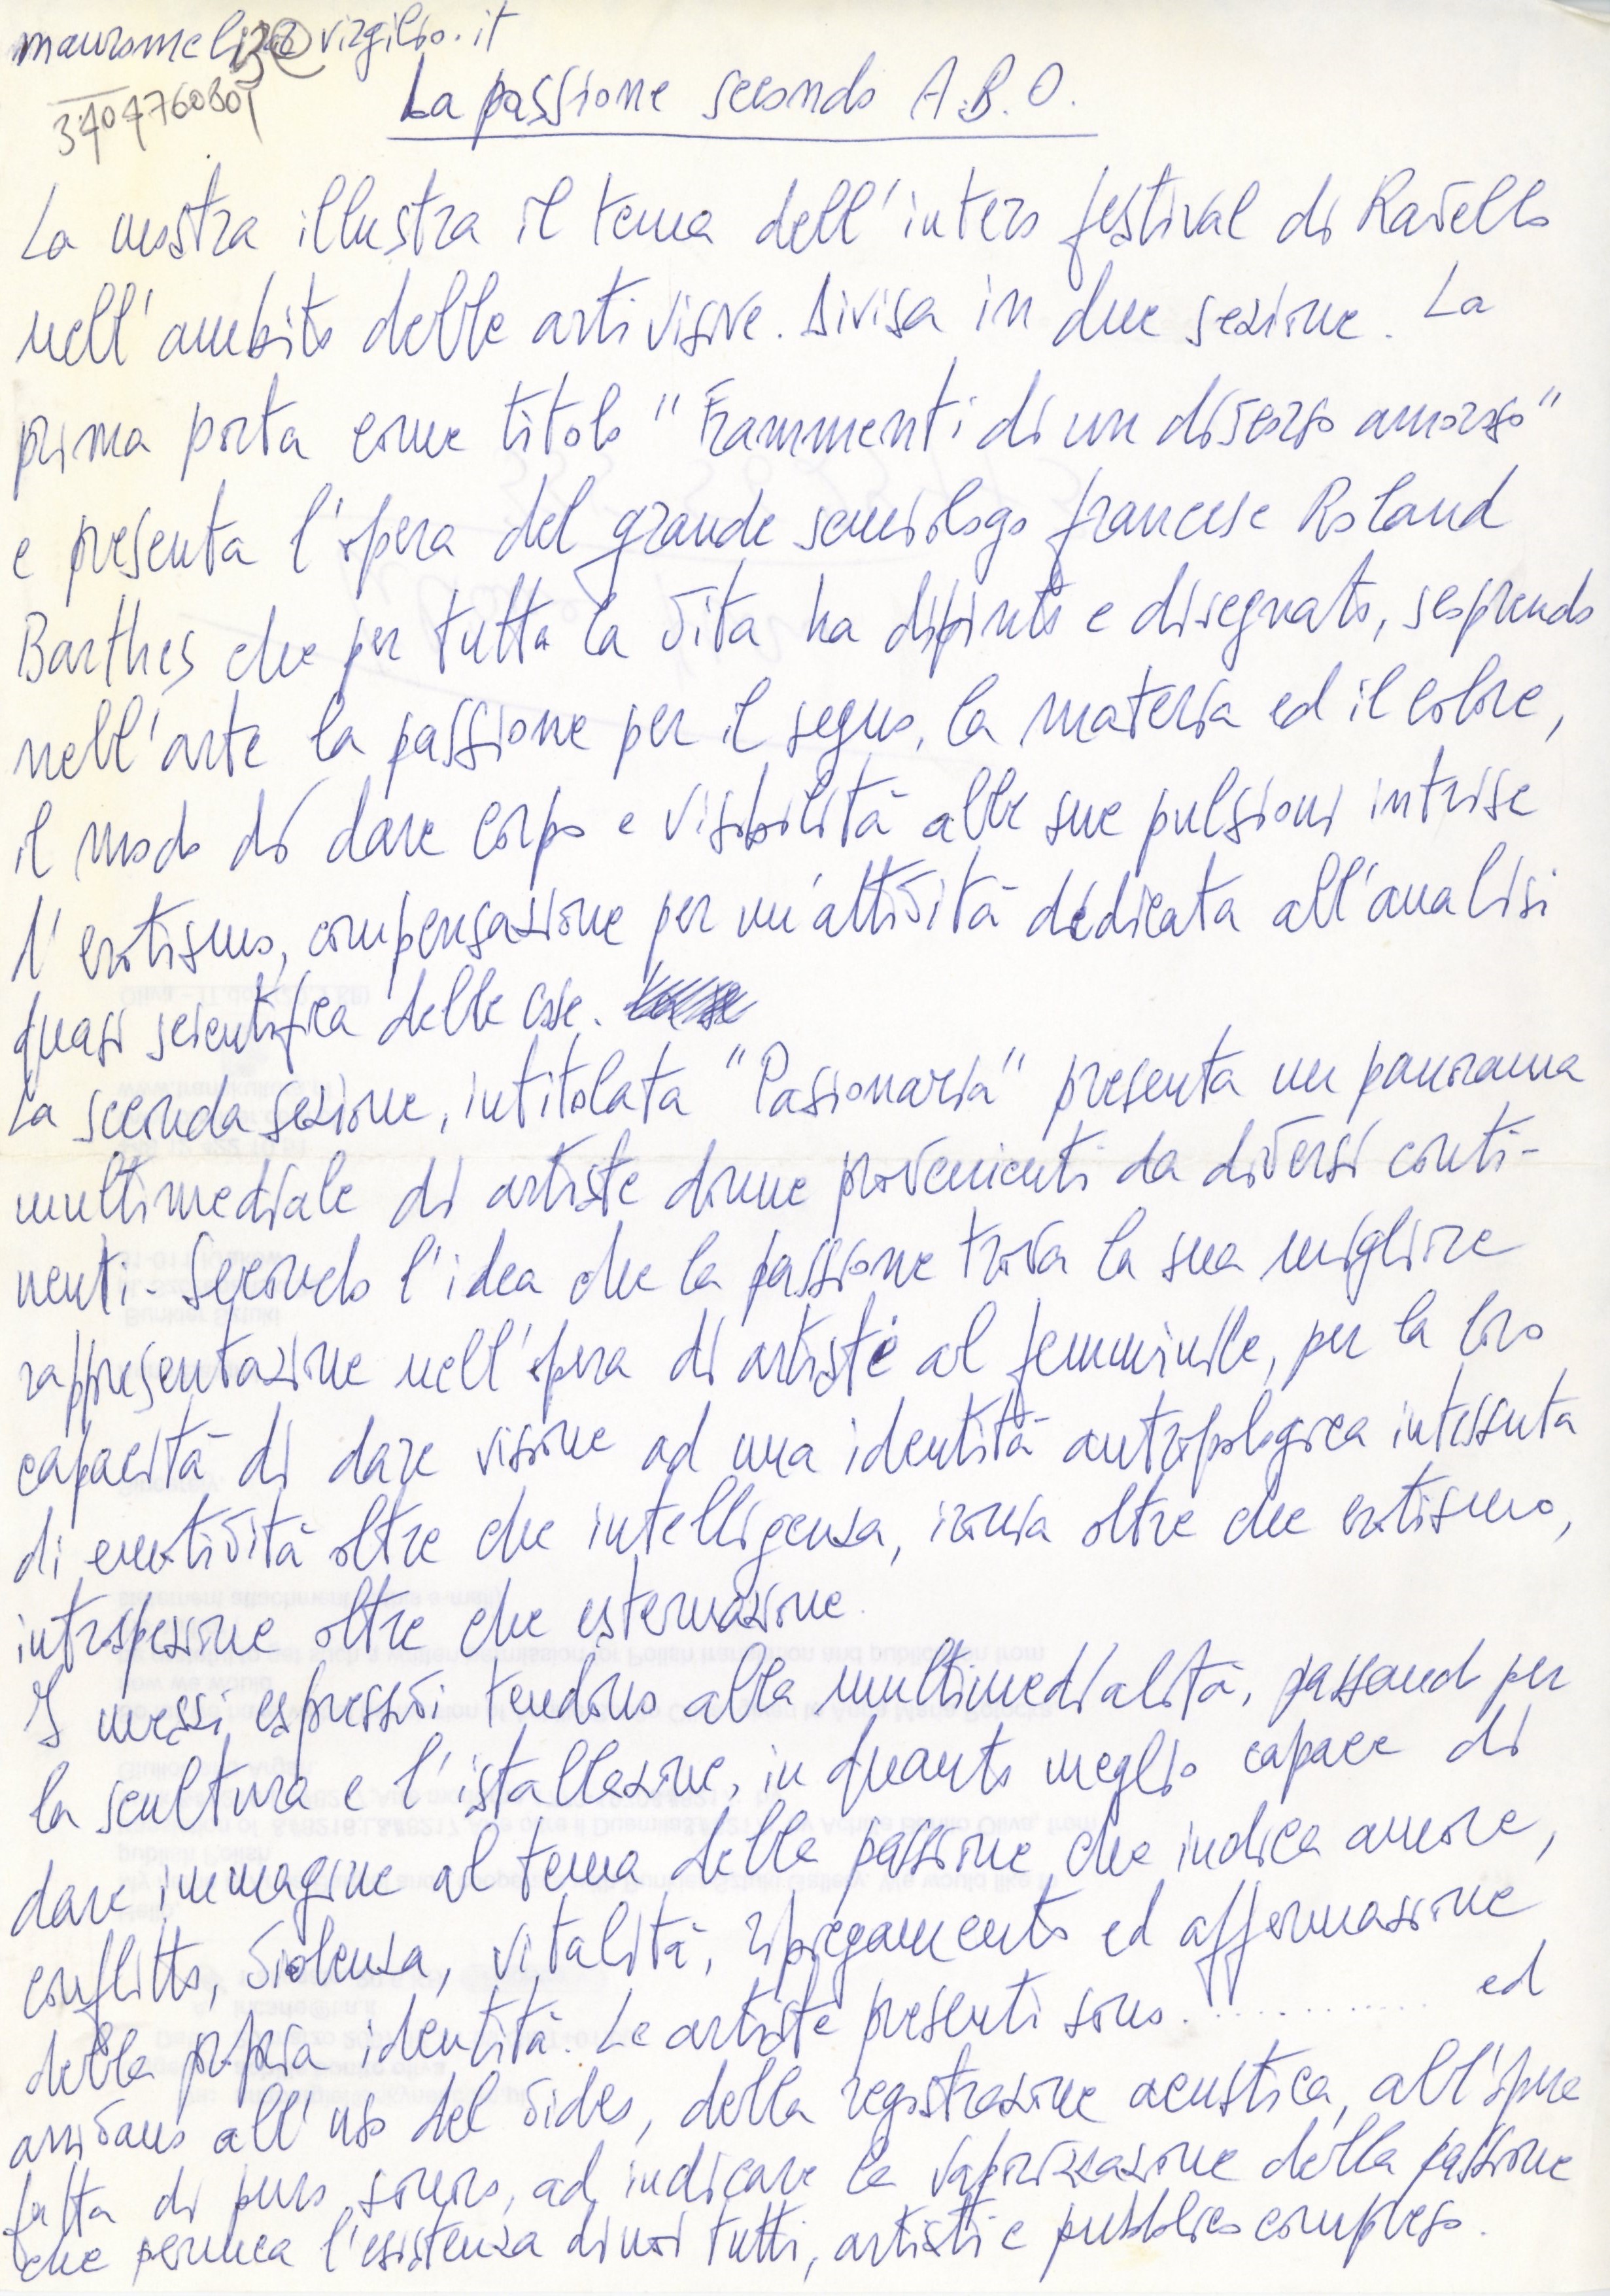 @virgilio.it
La passione secondo A.B.O.
La mostra illustra il tema dell'intero festival di Ravello
nell'ambito delle arti visive. Divisa in due sezione. La
prima porta come titolo "Frammenti di un discorso amoroso"
e presenta l'opera del grande semiologo francese Roland
Barthes che per tutta la vita ha dipinto e disegnato,
nell'arte la passione per il segno, la materia ed il colore,
il modo di dare corpo e visibilità alle sue pulsioni intrise
d'erotismo, compensazione per un'attività dedicata all'analisi
quasi scientifica delle cose.
La seconda sezione, intitolata "Pasionaria" presenta un panorama
multimediale di artiste donne provenienti da diversi conti-
nenti. Secondo l'idea che la passione trova la sua migliore
rappresentazione nell'opera di artiste al femminile, per la loro
capacità di dare visione ad una identità antropologica intessuta
di emotività oltre che intelligenza, ironia oltre che erotismo,
introspezione oltre che esternazione.
I mezzi espressivi tendono alla multimedialità, passand per
la scultura e l'istallazione, in quanto meglio capace di
dare immagine al tema della passione che indica amore,
conflitto, violenza, vitalità, ripiegamento ed affermazione
della propria identità. Le artiste presenti sono ............ ed
arrivano all'uso del video, della registrazione acustica, all'opera
fatta di puro sonoro, ad indicare la vaporizzazione della passione
che permea l'esistenza di noi tutti, artisti e pubblico compreso.